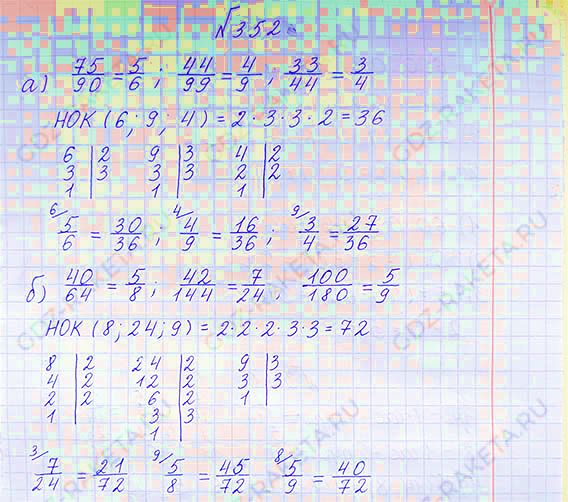 №352
а) 75/90 = 5/6; 44/99 = 4/9; 33/44 = 3/4
НОК (6; 9; 4) = 2·3·3·2 = 36
6 | 2    9 | 3    4 | 2
3 | 3    3 | 3    2 | 2
1 |    1 |    1 |
6/ 5/6 = 30/36; 4/ 4/9 = 16/36; 9/ 3/4 = 27/36
б) 40/64 = 5/8; 42/144 = 7/24; 100/180 = 5/9
НОК (8; 24; 9) = 2·2·2·3·3 = 72
8 | 2    24 | 2    9 | 3
4 | 2    12 | 2    3 | 3
2 | 2    6 | 2    1 |
1 |    3 | 3
1 |
3/ 7/24 = 21/72    9/ 5/8 = 45/72    8/ 5/9 = 40/72
GDZ-RAKETA.RU
GDZ-RAKETA.RU
GDZ-RAKETA.RU
GDZ-RAKETA.RU